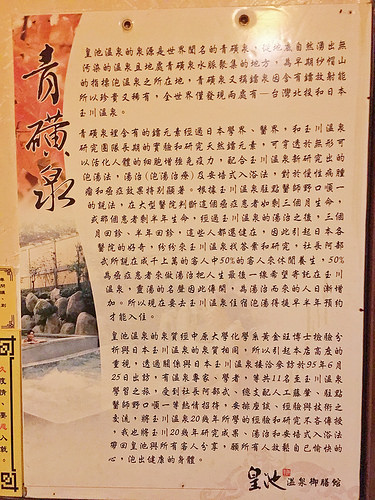 青磺泉
皇池溫泉的泉源是世界聞名的青磺泉，從地底自然湧出無
污染的溫泉且地處青磺泉水脈聚集的地方，為早期紗帽山
的指標泡溫泉之所在地，青磺泉又稱鐳泉因含有鐳放射能
所以珍貴又稀有，全世界僅發現兩處有─台灣北投和日本
玉川溫泉。
青磺泉裡含有的鐳元素經過日本學界、醫界，和玉川溫泉
研究團隊長期的實驗和研究天然的鐳元素，可穿透於無形可
以活化人體的細胞增強免疫力，配合玉川溫泉所研究出的
泡湯法，湯治(泡湯治療)及奕悟式入浴法，對於慢性病腫
瘤和癌症效果特別顯著。根據玉川溫泉駐點醫師野口順一
的說法，在大型醫院判斷這個癌症患者如剩三個月生命，
或那個患者剩半年生命，經過玉川溫泉的湯治之後，三個
月回診、半年回診，這些人都還健在，因此引起日本各
醫院的好奇，紛紛來玉川溫泉找答案和研究，社長阿部
武所說在成千上萬的客人中50%的客人來休閒養生，50%
為癌症患者來做湯治把人生最後一線希望寄託在玉川
溫泉，靈湯的名聲因此傳開，為湯治而來的人日漸增
加。所以現在要去玉川溫泉住宿泡湯得提早半年預約
才能入住。
皇池溫泉的泉質經中原大學化學系黃金旺博士檢驗分
析與日本玉川溫泉的泉質相同，所以引起本店高度的
重視，透過關係與日本玉川溫泉接洽來訪於95年6月
25日出訪，有溫泉專家、學者，等共11名至玉川溫泉
學習之旅，受到社長阿部武、總支配人工藤譽、駐點
醫師野口順一等熱情招待，安排座談、經驗與技術之
交流，將玉川溫泉20幾年所學的經驗和研究不吝傳授
，我也將玉川20幾年研究成果、湯治和奕悟式入浴法
帶回皇池與所有客人分享，願所有人放鬆自己愉快的
心，泡出健康的身體。
皇池溫泉御膳館